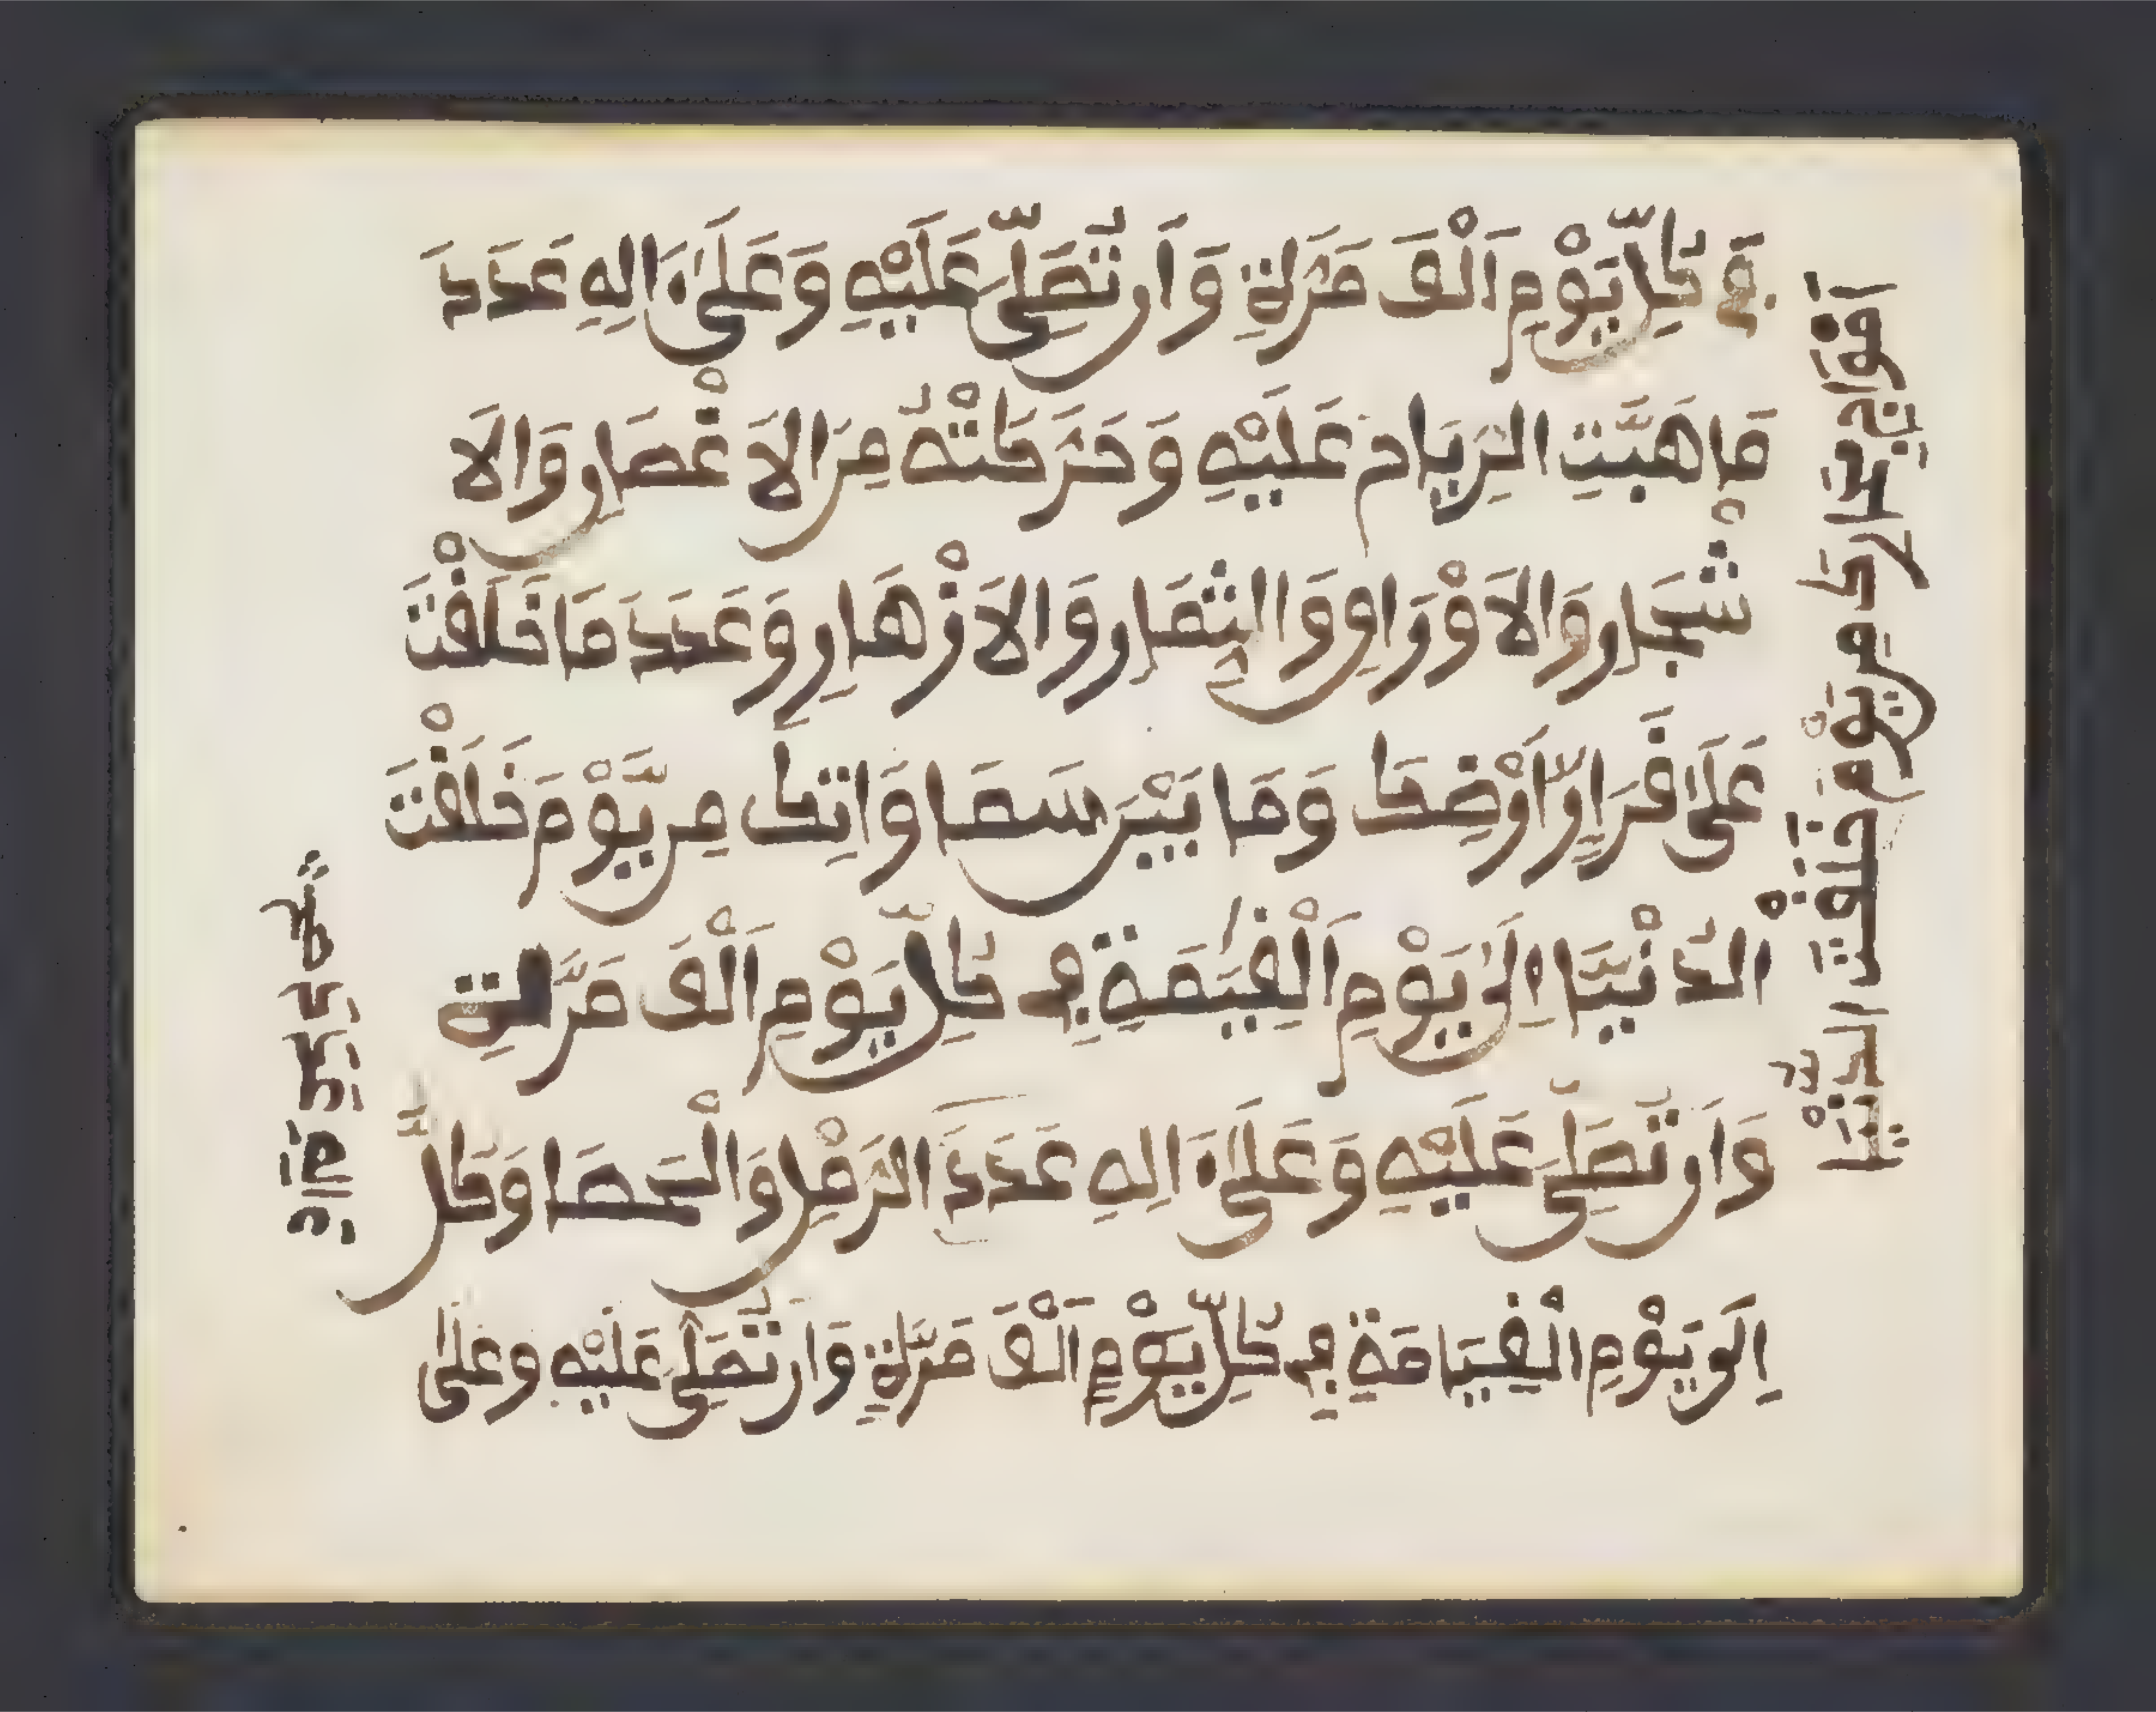 فِي كُلِّ يَوْمٍ اَلْفَ مَرَّةٍ وَاَن تُصَلِّيَ عَلَيْهِ وَعَلَىٰٓ ءَالِهِ عَدَدَ
مَا هَبَّتِ الرِّيَاحُ عَلَيْهِ وَحَرَّكَتْهُ مِنَ الاَغْصَانِ وَالاَ
شْجَارِ وَالاَوْرَاقِ وَالثِّمَارِ وَالاَزْهَارِ وَعَدَدَ مَا خَلَقْتَ
عَلَىٰ قَرَارِ أَرْضِكَ وَمَا بَيْنَ سَمَاوَاتِكَ مِن يَّوْمَ خَلَقْتَ
الدُّنْيَا اِلَىٰ يَوْمِ اَلْقِيَٰمَةِ فِي كُلِّ يَوْمٍ اَلْفَ مَرَّةٍ
وَاَن تُصَلِّيَ عَلَيْهِ وَعَلَىٰٓ ءَالِهِ عَدَدَ الرَّمْلِ وَالْحَصَا وَكُلِّ
اِلَى يَوْمِ الْقِيَامَةِ فِي كُلِّ يَوْمٍ اَلْفَ مَرَّةٍ وَاَن تُصَلِّيَ عَلَيْهِ وَعَلَىٰ
اَمْوَاجِ بحَارِكَ مِن يَوْمَ خَلَقْتَ الدُّنْيَا